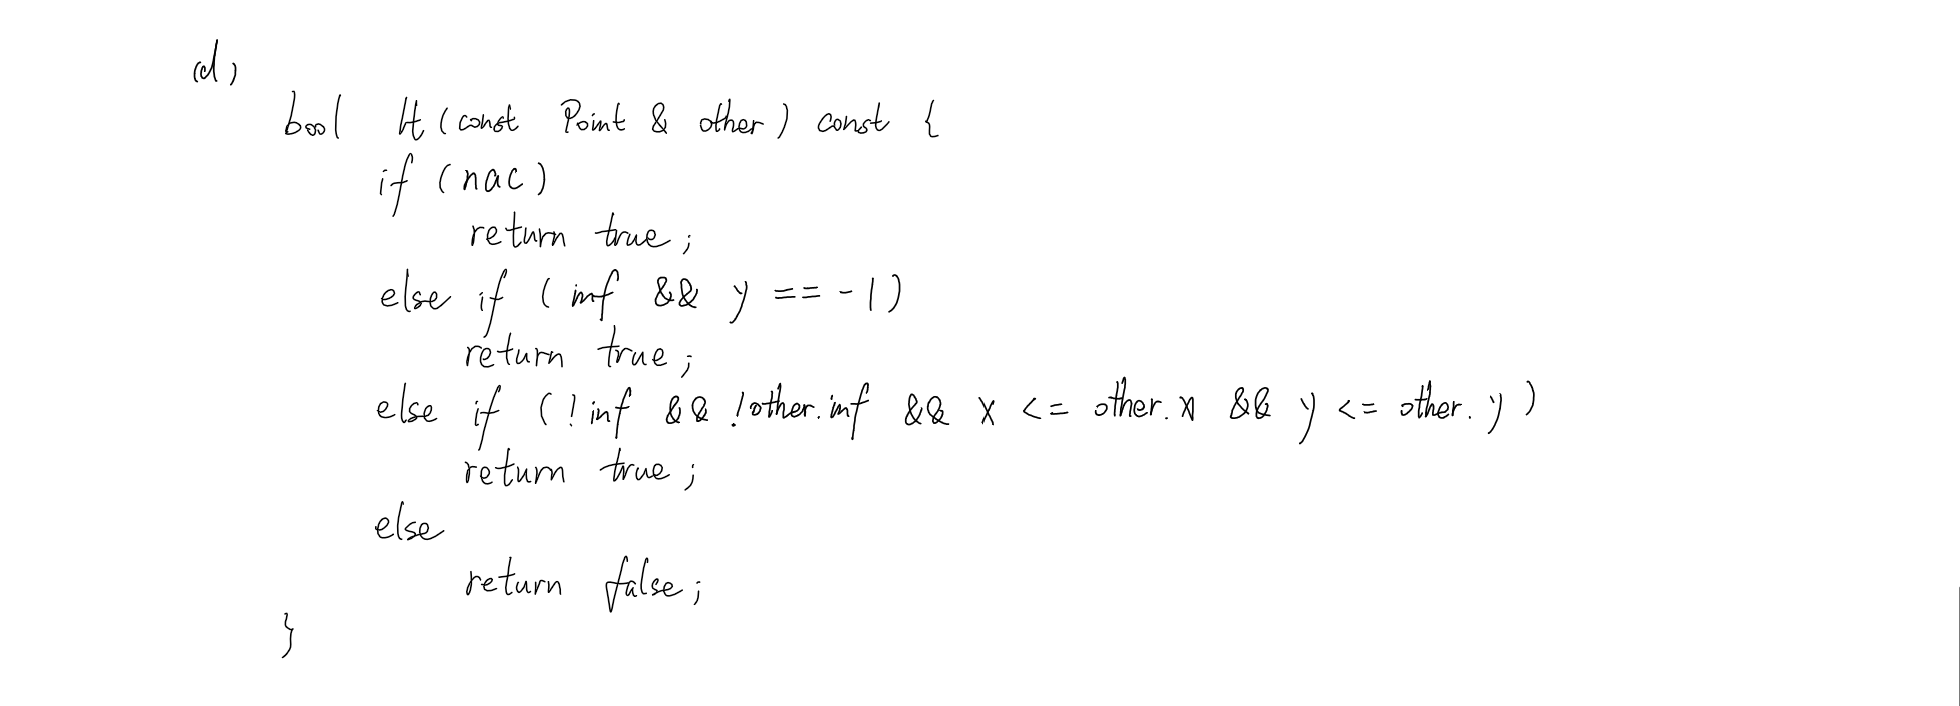 (d)
bool lt (const Point & other) const {
if (nac)
return true;
else if (inf && y == -1)
return true;
else if (!inf && !other.inf && x <= other.x && y <= other.y)
return true;
else
return false;
}